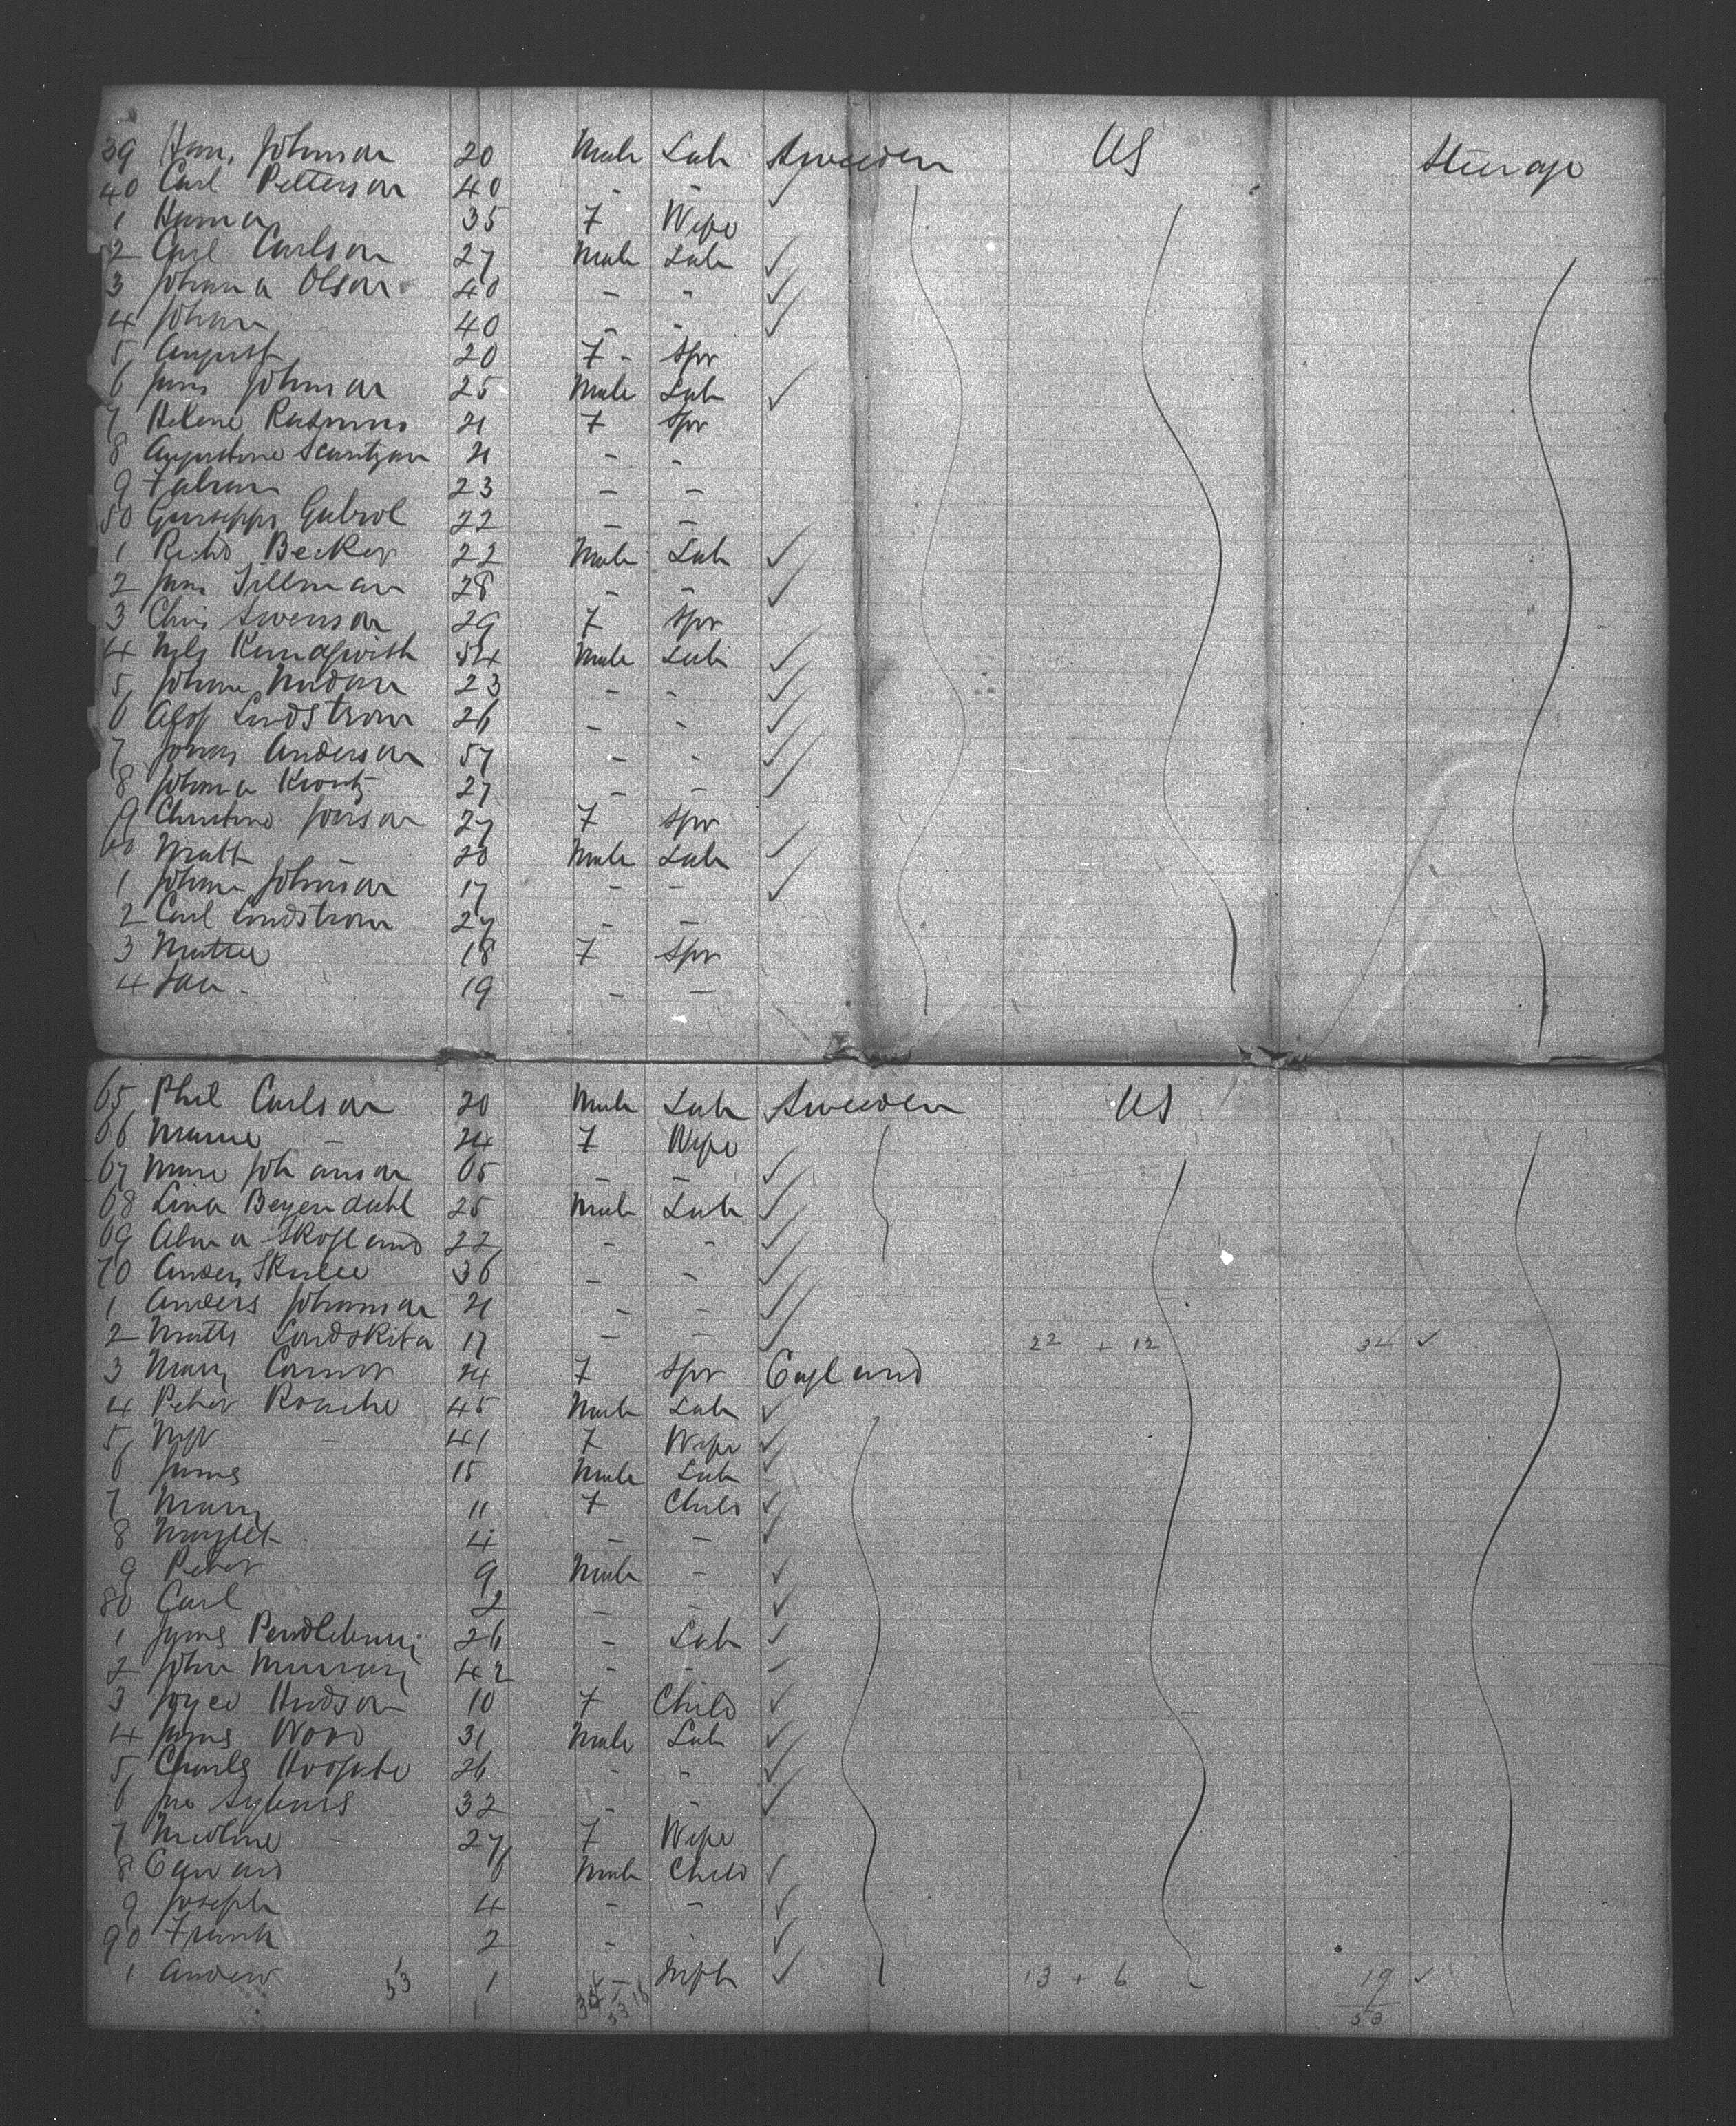 39 Hans Johnson 20 Male Lab Sweeden US Steerage
40 Carl Petterson 40 - -
1 Hanna 35 F Wife
2 Carl Carlson 27 Male Lab ✓
3 Johana Olson 40 - - ✓
4 Johan 40 - - ✓
5 August 20 F - Spr
6 Jons Johnson 25 Male Lab ✓
7 Helene Rasmus 21 F Spr
8 Augustine 21 - -
9 23 - -
50 Guiseppi 22 - -
1 Becker 22 Male Lab ✓
2 Jans Tillman 28 - - ✓
3 Chris Swenson 29 F Spr
4 Nels 54 Male Lab ✓
5 Johan 23 - - ✓
6 Lindstrom 26 - - ✓
7 Jonas Anderson 57 - - ✓
8 Johana 27 - - ✓
9 Christine Jonson 27 F Spr
60 Matt - 20 Male Lab ✓
1 Johan Johnson 17 - - ✓
2 Carl Lindstrom 27 - -
3 18 F Spr
4 19 - -
65 Phil Carlson 20 Male Lab Sweeden US
66 - 24 F Wife
67 Johanson 65 - - ✓
68 Lina Beyendahl 25 Male Lab ✓
69 Alma Skogland 22 - - ✓
70 36 - - ✓
1 Anders Johanson 21 - - ✓
2 Matts 17 - - ✓ 22 + 12 34 ✓
3 Mary Connor 24 F Spr England
4 Peter Roache 45 Male Lab ✓
5 Mgt - 41 F Wife ✓
6 James 15 Male Lab
7 Mary 11 F Child ✓
8 4 - - ✓
9 Peter 9 Male - ✓
80 Carl 2 - - ✓
1 James Pendlebury 26 - Lab ✓
2 John Murray 42 - - ✓
3 Joyce Hudson 10 F Child ✓
4 James Wood 31 Male Lab ✓
5 Charles 26 - - ✓
6 32 - - ✓
7 - 27 F Wife
8 Edward 6 Male Child ✓
9 Joseph 4 - - ✓
90 Frank 2 - - ✓
1 Andrew 53 1 - Inft ✓ 13 + 6 19 ✓
53